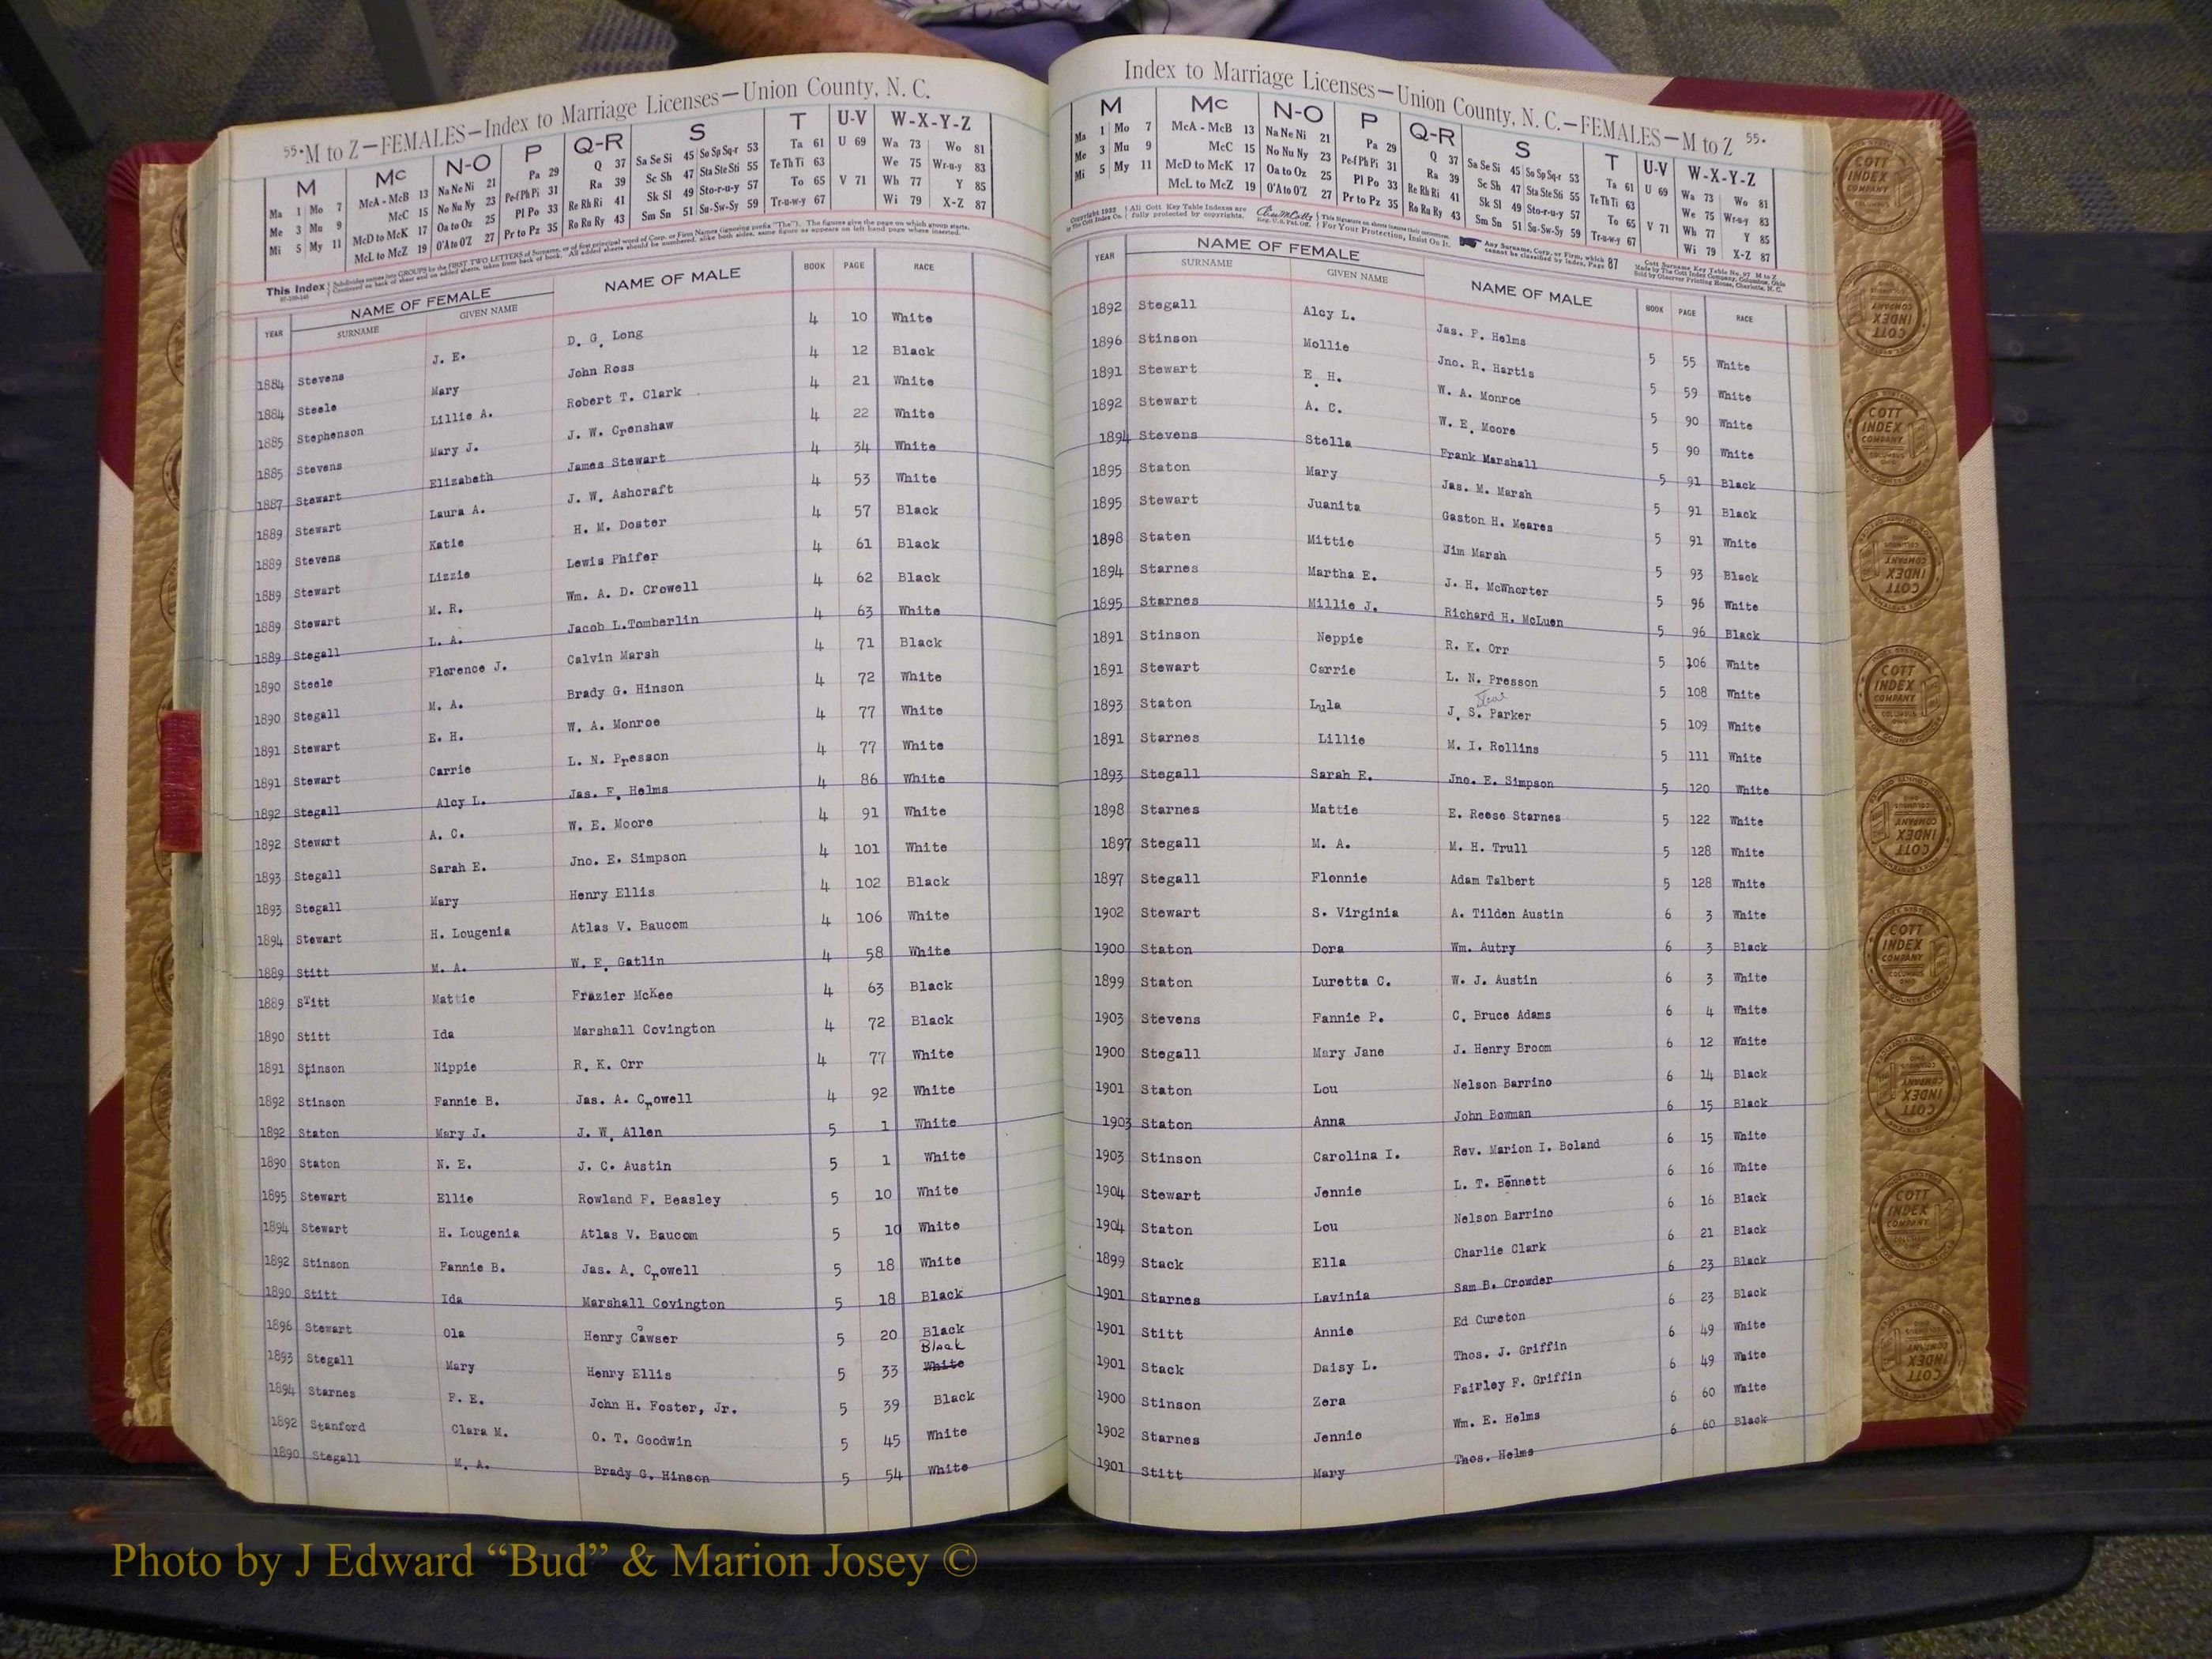 55· M to Z—FEMALES—Index to Marriage Licenses—Union County, N. C.
M Mc N-O P Q-R S T U-V W-X-Y-Z
Ma 1 Mo 7 McA - McB 13 Na Ne Ni 21 Pa 29 Q 37 Sa Se Si 45 So Sp Sq-r 53 Ta 61 U 69 Wa 73 Wo 81
Me 3 Mu 9 McC 15 No Nu Ny 23 Pe-f Ph Pi 31 Ra 39 Sc Sh 47 Sta Ste Sti 55 Te Th Ti 63 We 75 Wr-u-y 83
Mi 5 My 11 McD to McK 17 Oa to Oz 25 Pl Po 33 Re Rh Ri 41 Sk Sl 49 Sto-r-u-y 57 To 65 V 71 Wh 77 Y 85
McL to McZ 19 O'A to O'Z 27 Pr to Pz 35 Ro Ru Ry 43 Sm Sn 51 Su-Sw-Sy 59 Tr-u-w-y 67 Wi 79 X-Z 87
This Index
YEAR NAME OF FEMALE NAME OF MALE BOOK PAGE RACE
SURNAME GIVEN NAME
1884 Stevens J. E. D. G. Long 4 10 White
1884 Steele Mary John Ross 4 12 Black
1885 Stephenson Lillie A. Robert T. Clark 4 21 White
1885 Stevens Mary J. J. W. Crenshaw 4 22 White
1887 Stewart Elizabeth James Stewart 4 34 White
1889 Stewart Laura A. J. W. Ashcraft 4 53 White
1889 Stevens Katie H. M. Doster 4 57 Black
1889 Stewart Lizzie Lewis Phifer 4 61 Black
1889 Stewart M. R. Wm. A. D. Crowell 4 62 Black
1889 Stegall L. A. Jacob L.Tomberlin 4 63 White
1890 Steele Florence J. Calvin Marsh 4 71 Black
1890 Stegall M. A. Brady G. Hinson 4 72 White
1891 Stewart E. H. W. A. Monroe 4 77 White
1891 Stewart Carrie L. N. Presson 4 77 White
1892 Stegall Alcy L. Jas. F. Helms 4 86 White
1892 Stewart A. C. W. E. Moore 4 91 White
1893 Stegall Sarah E. Jno. E. Simpson 4 101 White
1893 Stegall Mary Henry Ellis 4 102 Black
1894 Stewart H. Lougenia Atlas V. Baucom 4 106 White
1889 Stitt M. A. W. E. Gatlin 4 58 White
1889 Stitt Mattie Frazier McKee 4 63 Black
1890 Stitt Ida Marshall Covington 4 72 Black
1891 Stinson Nippie R. K. Orr 4 77 White
1892 Stinson Fannie B. Jas. A. Crowell 4 92 White
1892 Staton Mary J. J. W. Allen 5 1 White
1890 Staton N. E. J. C. Austin 5 1 White
1895 Stewart Ellie Rowland F. Beasley 5 10 White
1894 Stewart H. Lougenia Atlas V. Baucom 5 10 White
1892 Stinson Fannie B. Jas. A. Crowell 5 18 White
1890 Stitt Ida Marshall Covington 5 18 Black
1896 Stewart Ola Henry Cawser 5 20 Black
Black
1893 Stegall Mary Henry Ellis 5 33 White
1894 Starnes F. E. John H. Foster, Jr. 5 39 Black
1892 Stanford Clara M. O. T. Goodwin 5 45 White
1890 Stegall M. A. Brady G. Hinson 5 54 White
Index to Marriage Licenses—Union County, N. C.—FEMALES—M to Z 55·
M Mc N-O P Q-R S T U-V W-X-Y-Z
Ma 1 Mo 7 McA - McB 13 Na Ne Ni 21 Pa 29 Q 37 Sa Se Si 45 So Sp Sq-r 53 Ta 61 U 69 Wa 73 Wo 81
Me 3 Mu 9 McC 15 No Nu Ny 23 Pe-f Ph Pi 31 Ra 39 Sc Sh 47 Sta Ste Sti 55 Te Th Ti 63 We 75 Wr-u-y 83
Mi 5 My 11 McD to McK 17 Oa to Oz 25 Pl Po 33 Re Rh Ri 41 Sk Sl 49 Sto-r-u-y 57 To 65 V 71 Wh 77 Y 85
McL to McZ 19 O'A to O'Z 27 Pr to Pz 35 Ro Ru Ry 43 Sm Sn 51 Su-Sw-Sy 59 Tr-u-w-y 67 Wi 79 X-Z 87
YEAR NAME OF FEMALE NAME OF MALE BOOK PAGE RACE
SURNAME GIVEN NAME
1892 Stegall Alcy L. Jas. F. Helms 5 55 White
1896 Stinson Mollie Jno. R. Hartis 5 59 White
1891 Stewart E. H. W. A. Monroe 5 90 White
1892 Stewart A. C. W. E. Moore 5 90 White
1894 Stevens Stella Frank Marshall 5 91 Black
1895 Staton Mary Jas. M. Marsh 5 91 Black
1895 Stewart Juanita Gaston H. Meares 5 91 White
1898 Staten Mittie Jim Marsh 5 93 Black
1894 Starnes Martha E. J. H. McWhorter 5 96 White
1895 Starnes Millie J. Richard H. McLuen 5 96 Black
1891 Stinson Neppie R. K. Orr 5 106 White
1891 Stewart Carrie L. N. Presson 5 108 White
1893 Staton Lula J. S. Parker 5 109 White
1891 Starnes Lillie M. I. Rollins 5 111 White
1893 Stegall Sarah E. Jno. E. Simpson 5 120 White
1898 Starnes Mattie E. Reese Starnes 5 122 White
1897 Stegall M. A. M. H. Trull 5 128 White
1897 Stegall Flonnie Adam Talbert 5 128 White
1902 Stewart S. Virginia A. Tilden Austin 6 3 White
1900 Staton Dora Wm. Autry 6 3 Black
1899 Staton Luretta C. W. J. Austin 6 3 White
1903 Stevens Fannie P. C. Bruce Adams 6 4 White
1900 Stegall Mary Jane J. Henry Broom 6 12 White
1901 Staton Lou Nelson Barrino 6 14 Black
1903 Staton Anna John Bowman 6 15 Black
1903 Stinson Carolina I. Rev. Marion I. Boland 6 15 White
1904 Stewart Jennie L. T. Bennett 6 16 White
1904 Staton Lou Nelson Barrino 6 16 Black
1899 Stack Ella Charlie Clark 6 21 Black
1901 Starnes Lavinia Sam B. Crowder 6 23 Black
1901 Stitt Annie Ed Cureton 6 23 Black
1901 Stack Daisy L. Thos. J. Griffin 6 49 White
1900 Stinson Zera Fairley F. Griffin 6 49 White
1902 Starnes Jennie Wm. E. Helms 6 60 White
1901 Stitt Mary Thos. Helms 6 60 Black
COTT INDEX COMPANY
Photo by J Edward “Bud” & Marion Josey ©